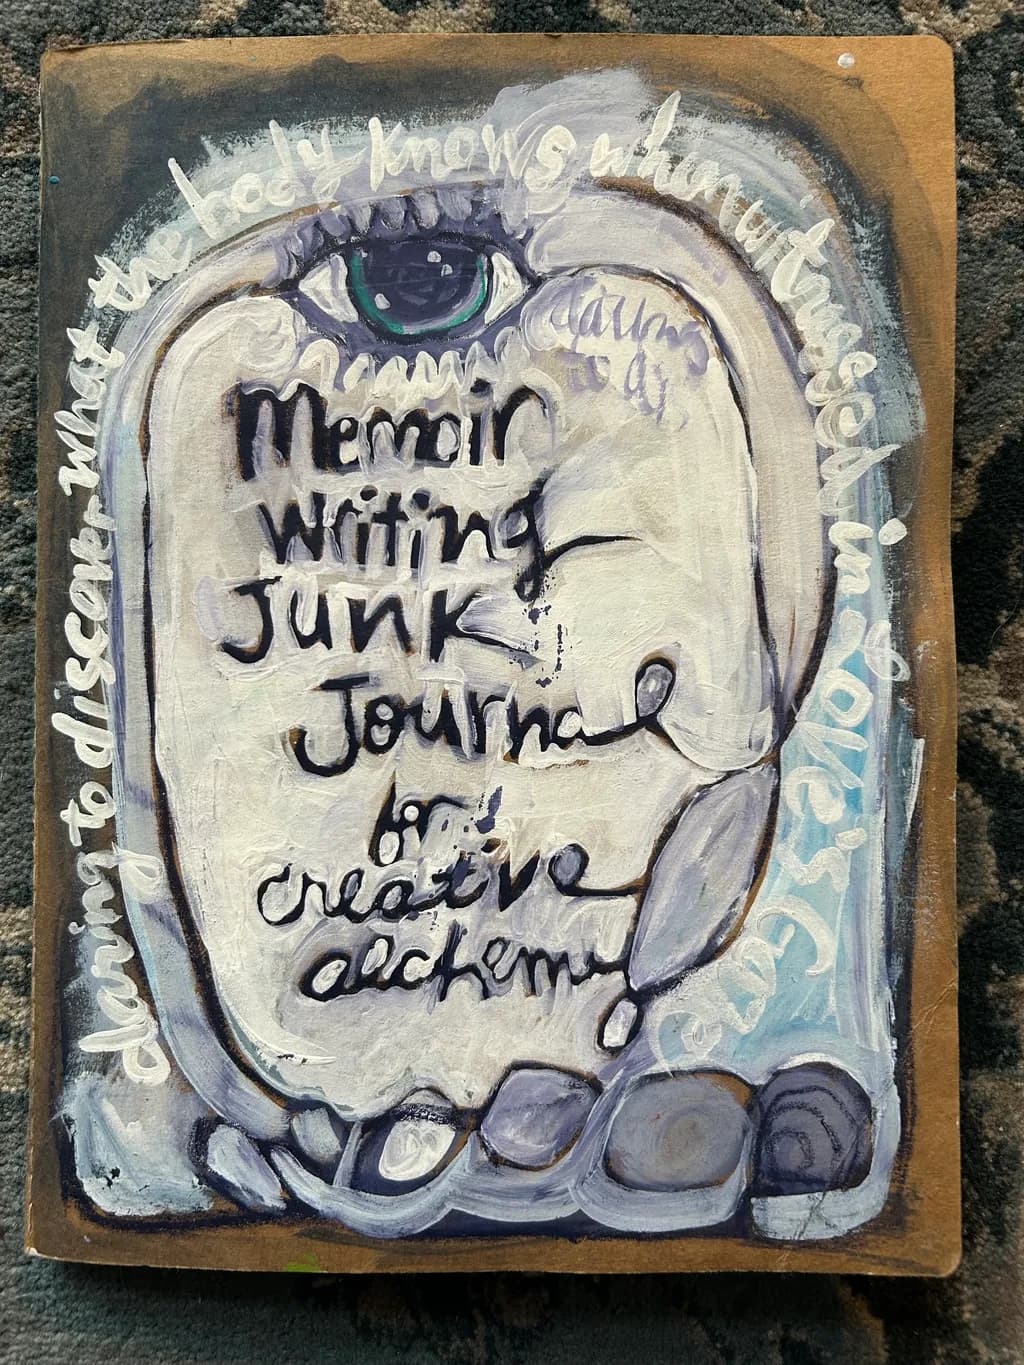 daring to discover what the body knows when witnessed in
daring
to
Memoir
Writing
Junk
Journal
for
creative
alchemy